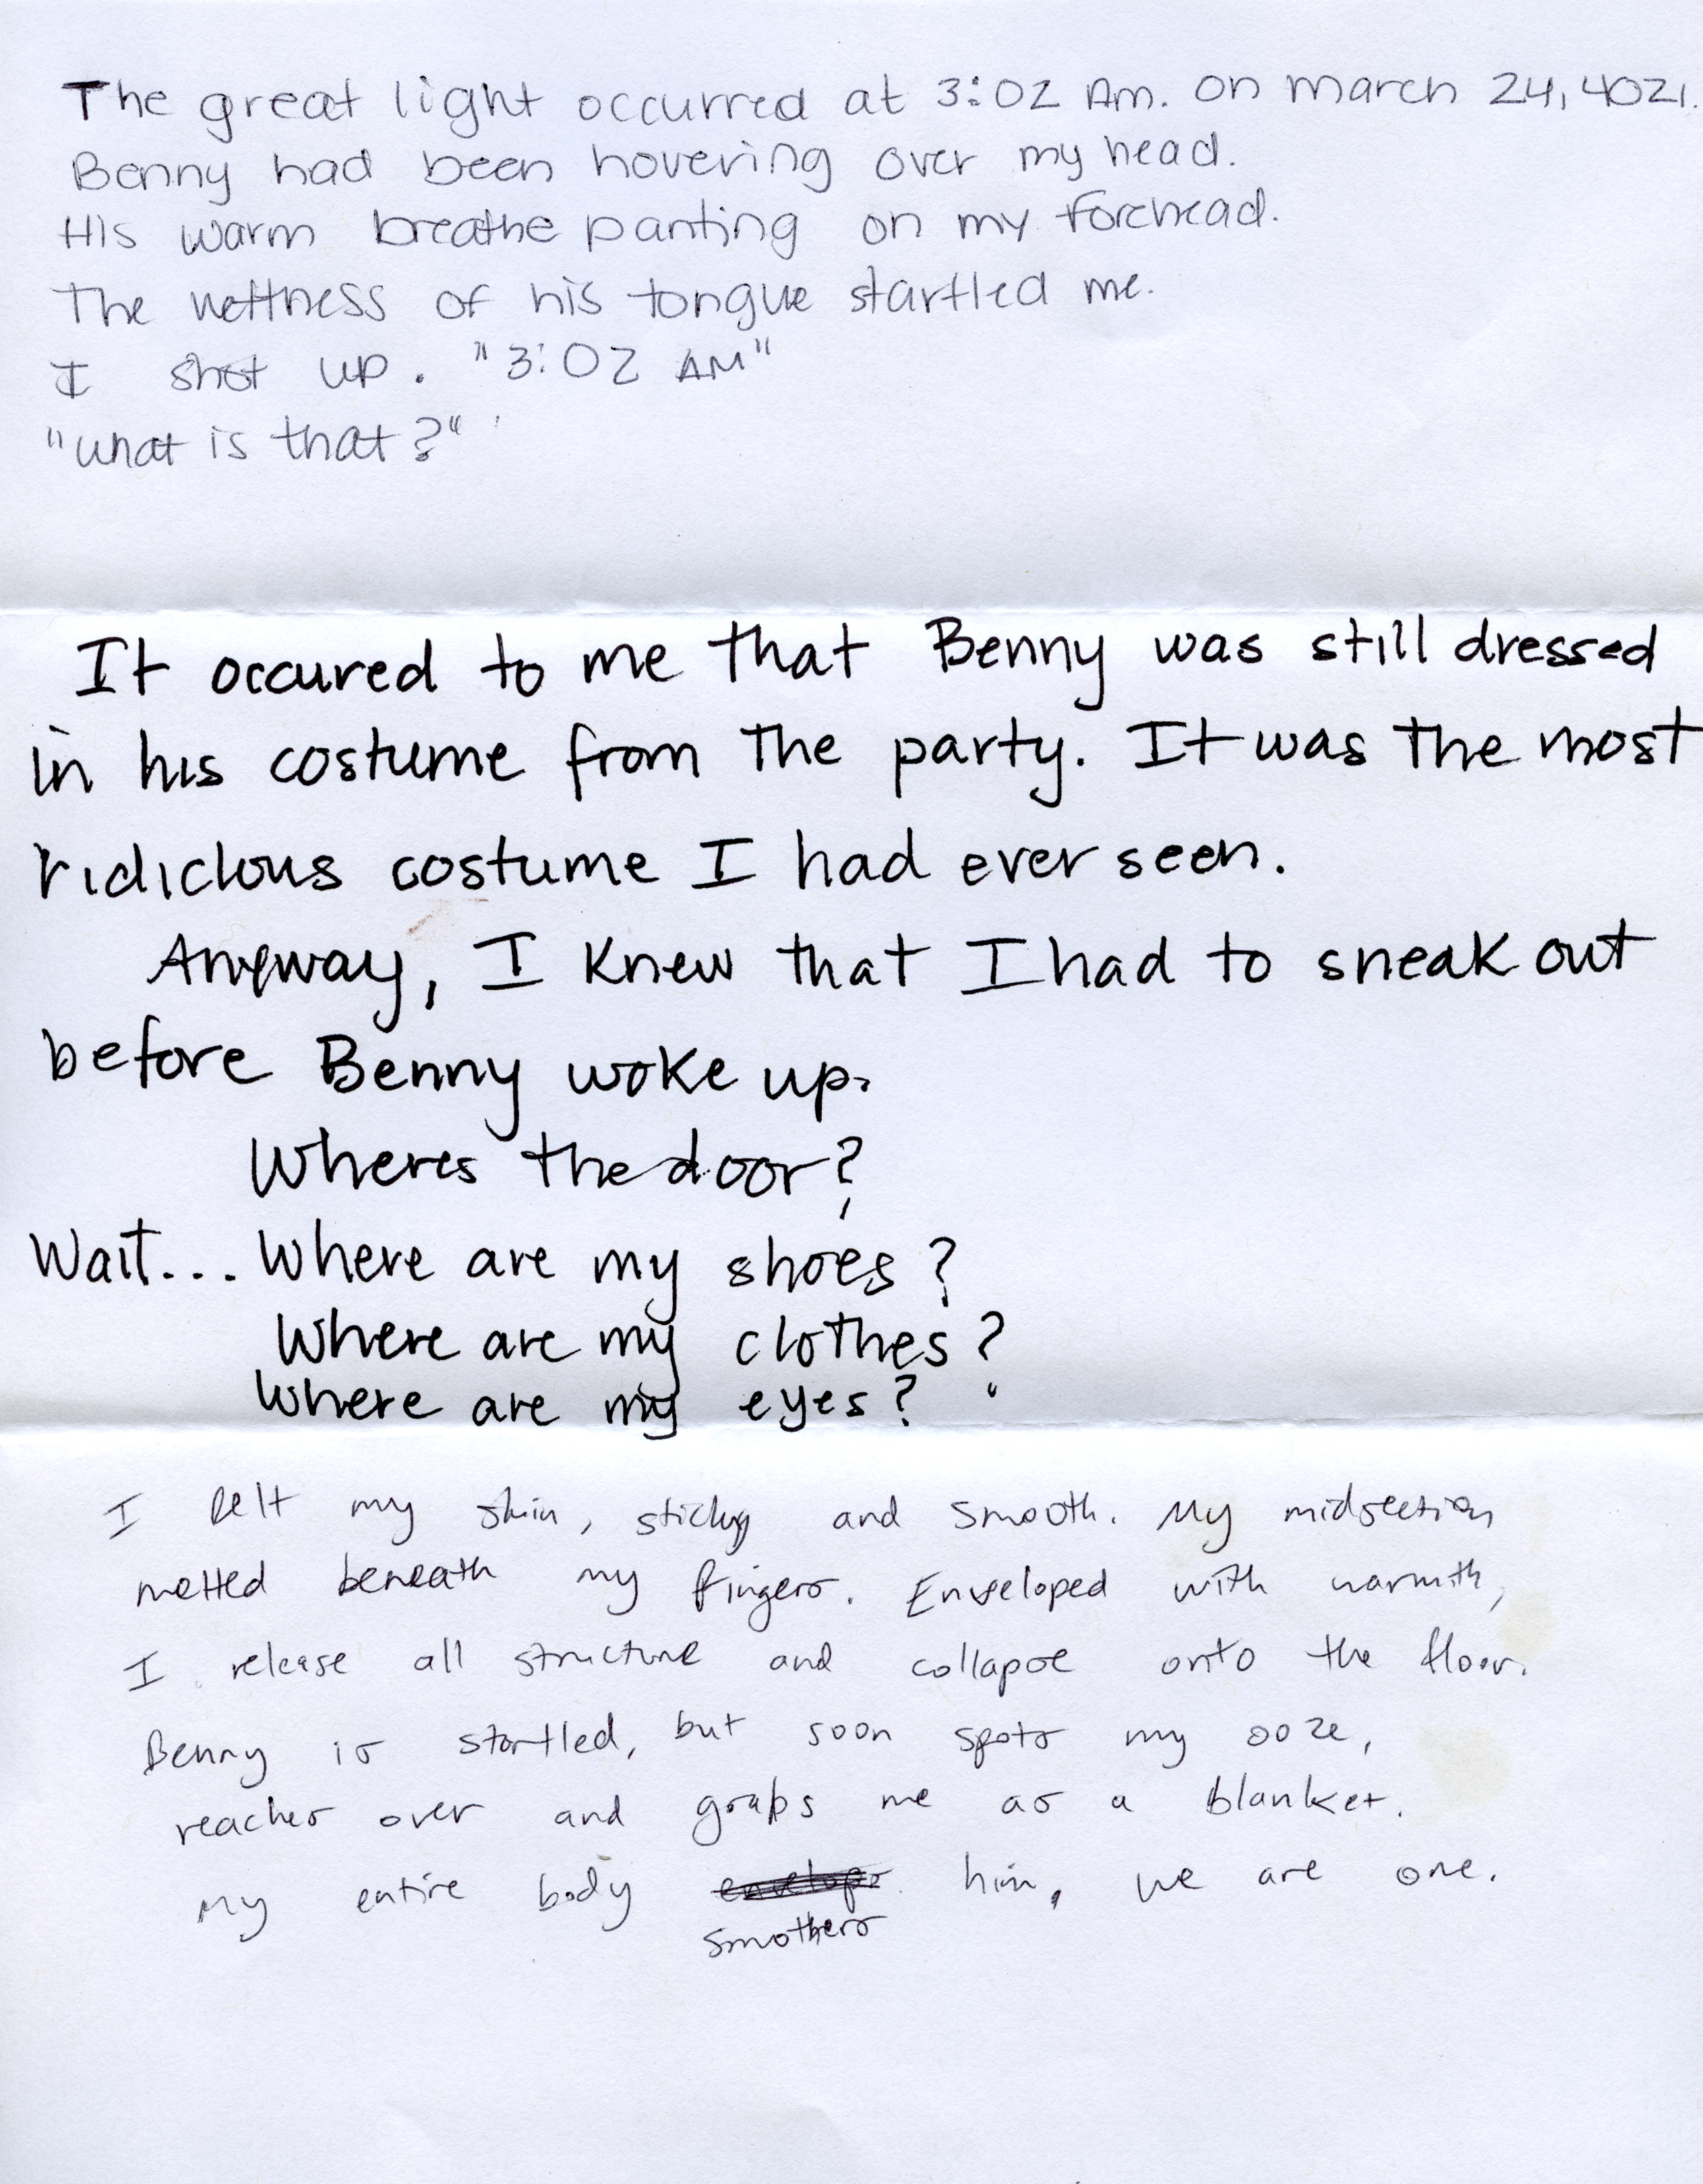 The great light occurred at 3:02 Am. on march 24, 4021.
Benny had been hovering over my head.
His warm breathe panting on my forehead.
The wettness of his tongue startled me.
I shot up. "3:02 AM"
"what is that?"
It occured to me that Benny was still dressed
in his costume from the party. It was the most
ridiclous costume I had ever seen.
Anyway, I knew that I had to sneak out
before Benny woke up.
Wheres the door?
Wait... Where are my shoes?
Where are my clothes?
Where are my eyes?
I felt my skin, sticky and smooth. My midsection
melted beneath my fingers. Enveloped with warmth,
I release all structure and collapse onto the floor.
Benny is startled, but soon spots my ooze,
reaches over and grabs me as a blanket.
My entire body envelops him, we are one.
smothers